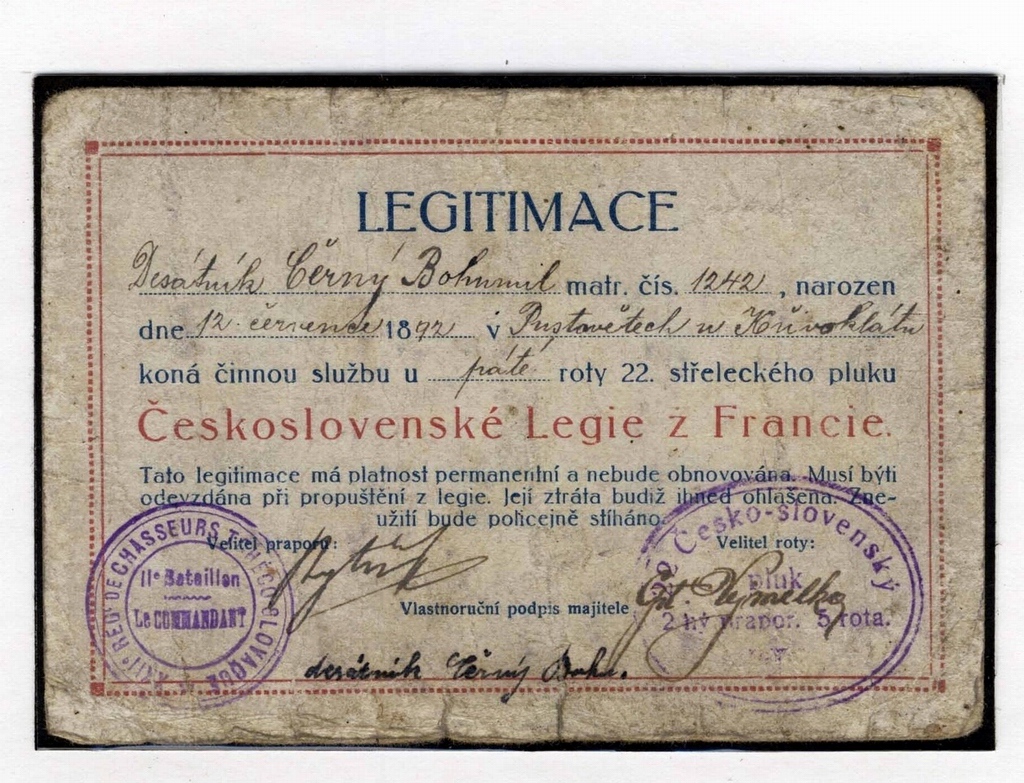 LEGITIMACE
Desátník Černý Bohumil matr. čís. 1242, narozen
dne 12. července 1892 v Pustovětech u Křivoklátu
koná činnou službu u páté roty 22. střeleckého pluku
Československé Legie z Francie.
Tato legitimace má platnost permanentní a nebude obnovována. Musí býti
odevzdána při propuštění z legie. Její ztráta budiž ihned ohlášena. Zne-
užití bude policejně stíháno.
Velitel praporu:
Velitel roty:
Vlastnoruční podpis majitele
desátník Černý Bohu.
XXIIe REGt DE CHASSEURS TCHECO-SLOVAQUE
IIe Bataillon
Le COMMANDANT
Česko-slovenský
pluk
2hý prapor. 5 rota.